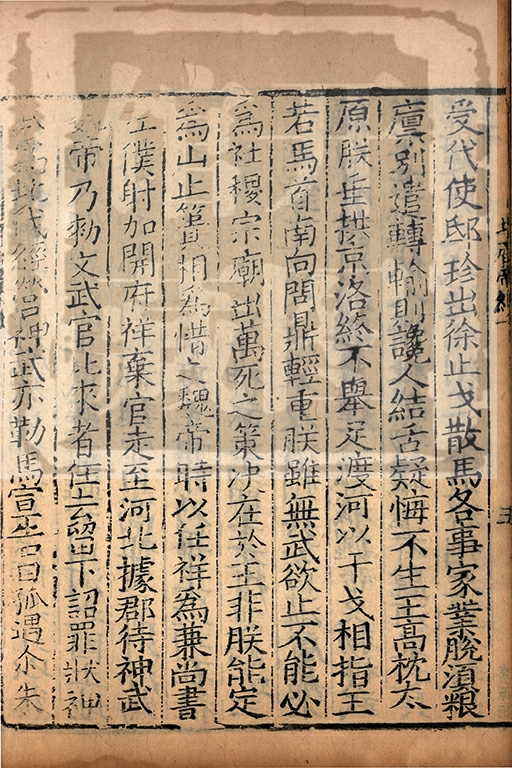 受代使邸珍出徐止戈散馬各事家業脫湏粮
廪别遣轉輸則讒人結舌疑悔不生王髙枕太
原朕垂拱京洛終不舉足渡河以干戈相指王
若馬首南向問鼎輕重朕雖無武欲止不能必
為社稷宗廟出萬死之策决在於王非朕能定
為山止簣相為惜之魏帝時以任祥為兼尚書
左僕射加開府祥棄官走至河北據郡待神武
帝乃勑文武官北來者任去留下詔罪狀神
經營神武亦勒馬宣告曰孤遇尒朱